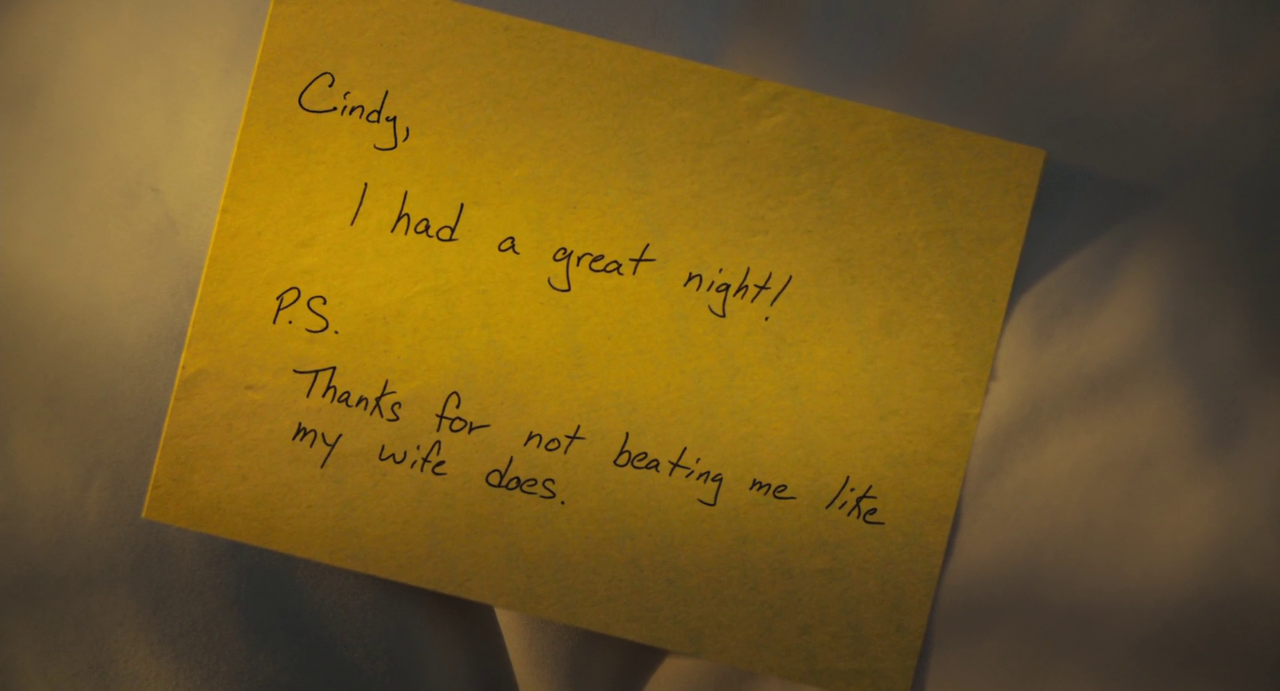 Cindy,
I had a great night!
P.S.
Thanks for not beating me like
my wife does.